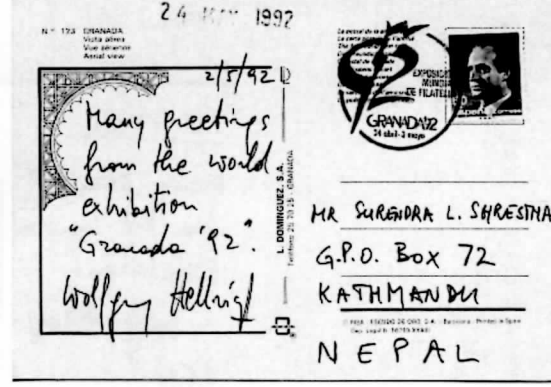 24 MAY 1992
N.º 193 GRANADA
Vista aérea
Vue aérienne
Aerial view
2/5/92
Many greetings
from the world
exhibition
"Granada '92".
Wolfgang Hellrigl
L. DOMINGUEZ, S.A.
GRANADA
EXPOSICION
MUNDIAL
DE FILATELIA
GRANADA'92
24 abril-3 mayo
MR SURENDRA L. SHRESTHA
G.P.O. BOX 72
KATHMANDU
NEPAL